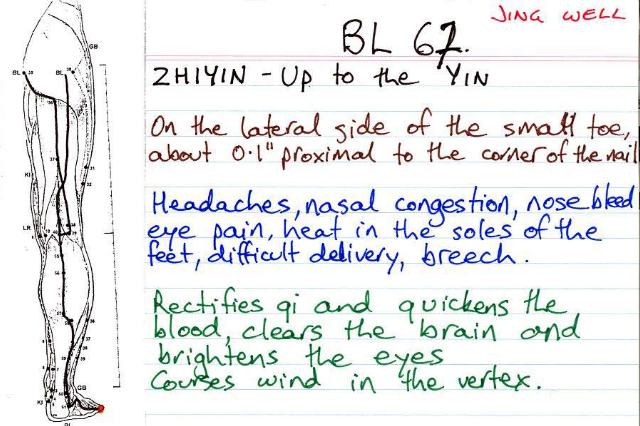 JING WELL
BL 67.
ZHIYIN - Up to the YIN
On the lateral side of the small toe,
about 0.1" proximal to the corner of the nail
Headaches, nasal congestion, nose bleed
eye pain, heat in the soles of the
feet, difficult delivery, breech.
Rectifies qi and quickens the
blood, clears the brain and
brightens the eyes
Courses wind in the vertex.
GB
BL
BL
KI
LR
GB
KI